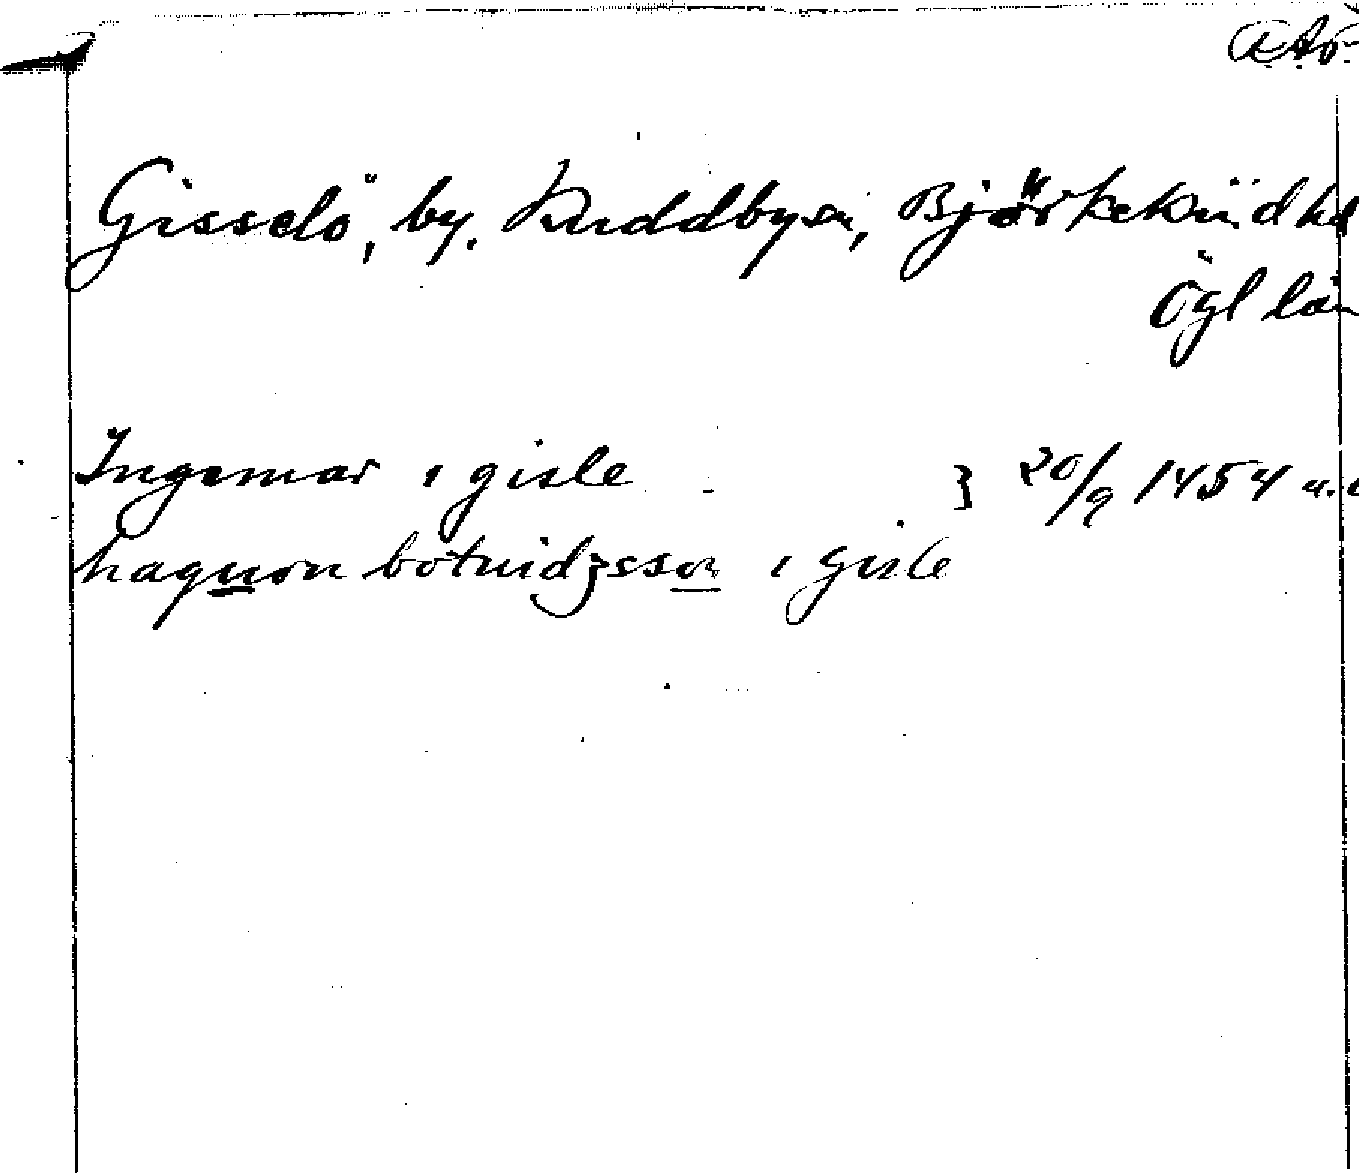 Gisselö, by, Kuddby sn, Björkekind hd
Ögl län
Ingemar i gisle } 20/9 1454
haquon botuidzsson i gisle